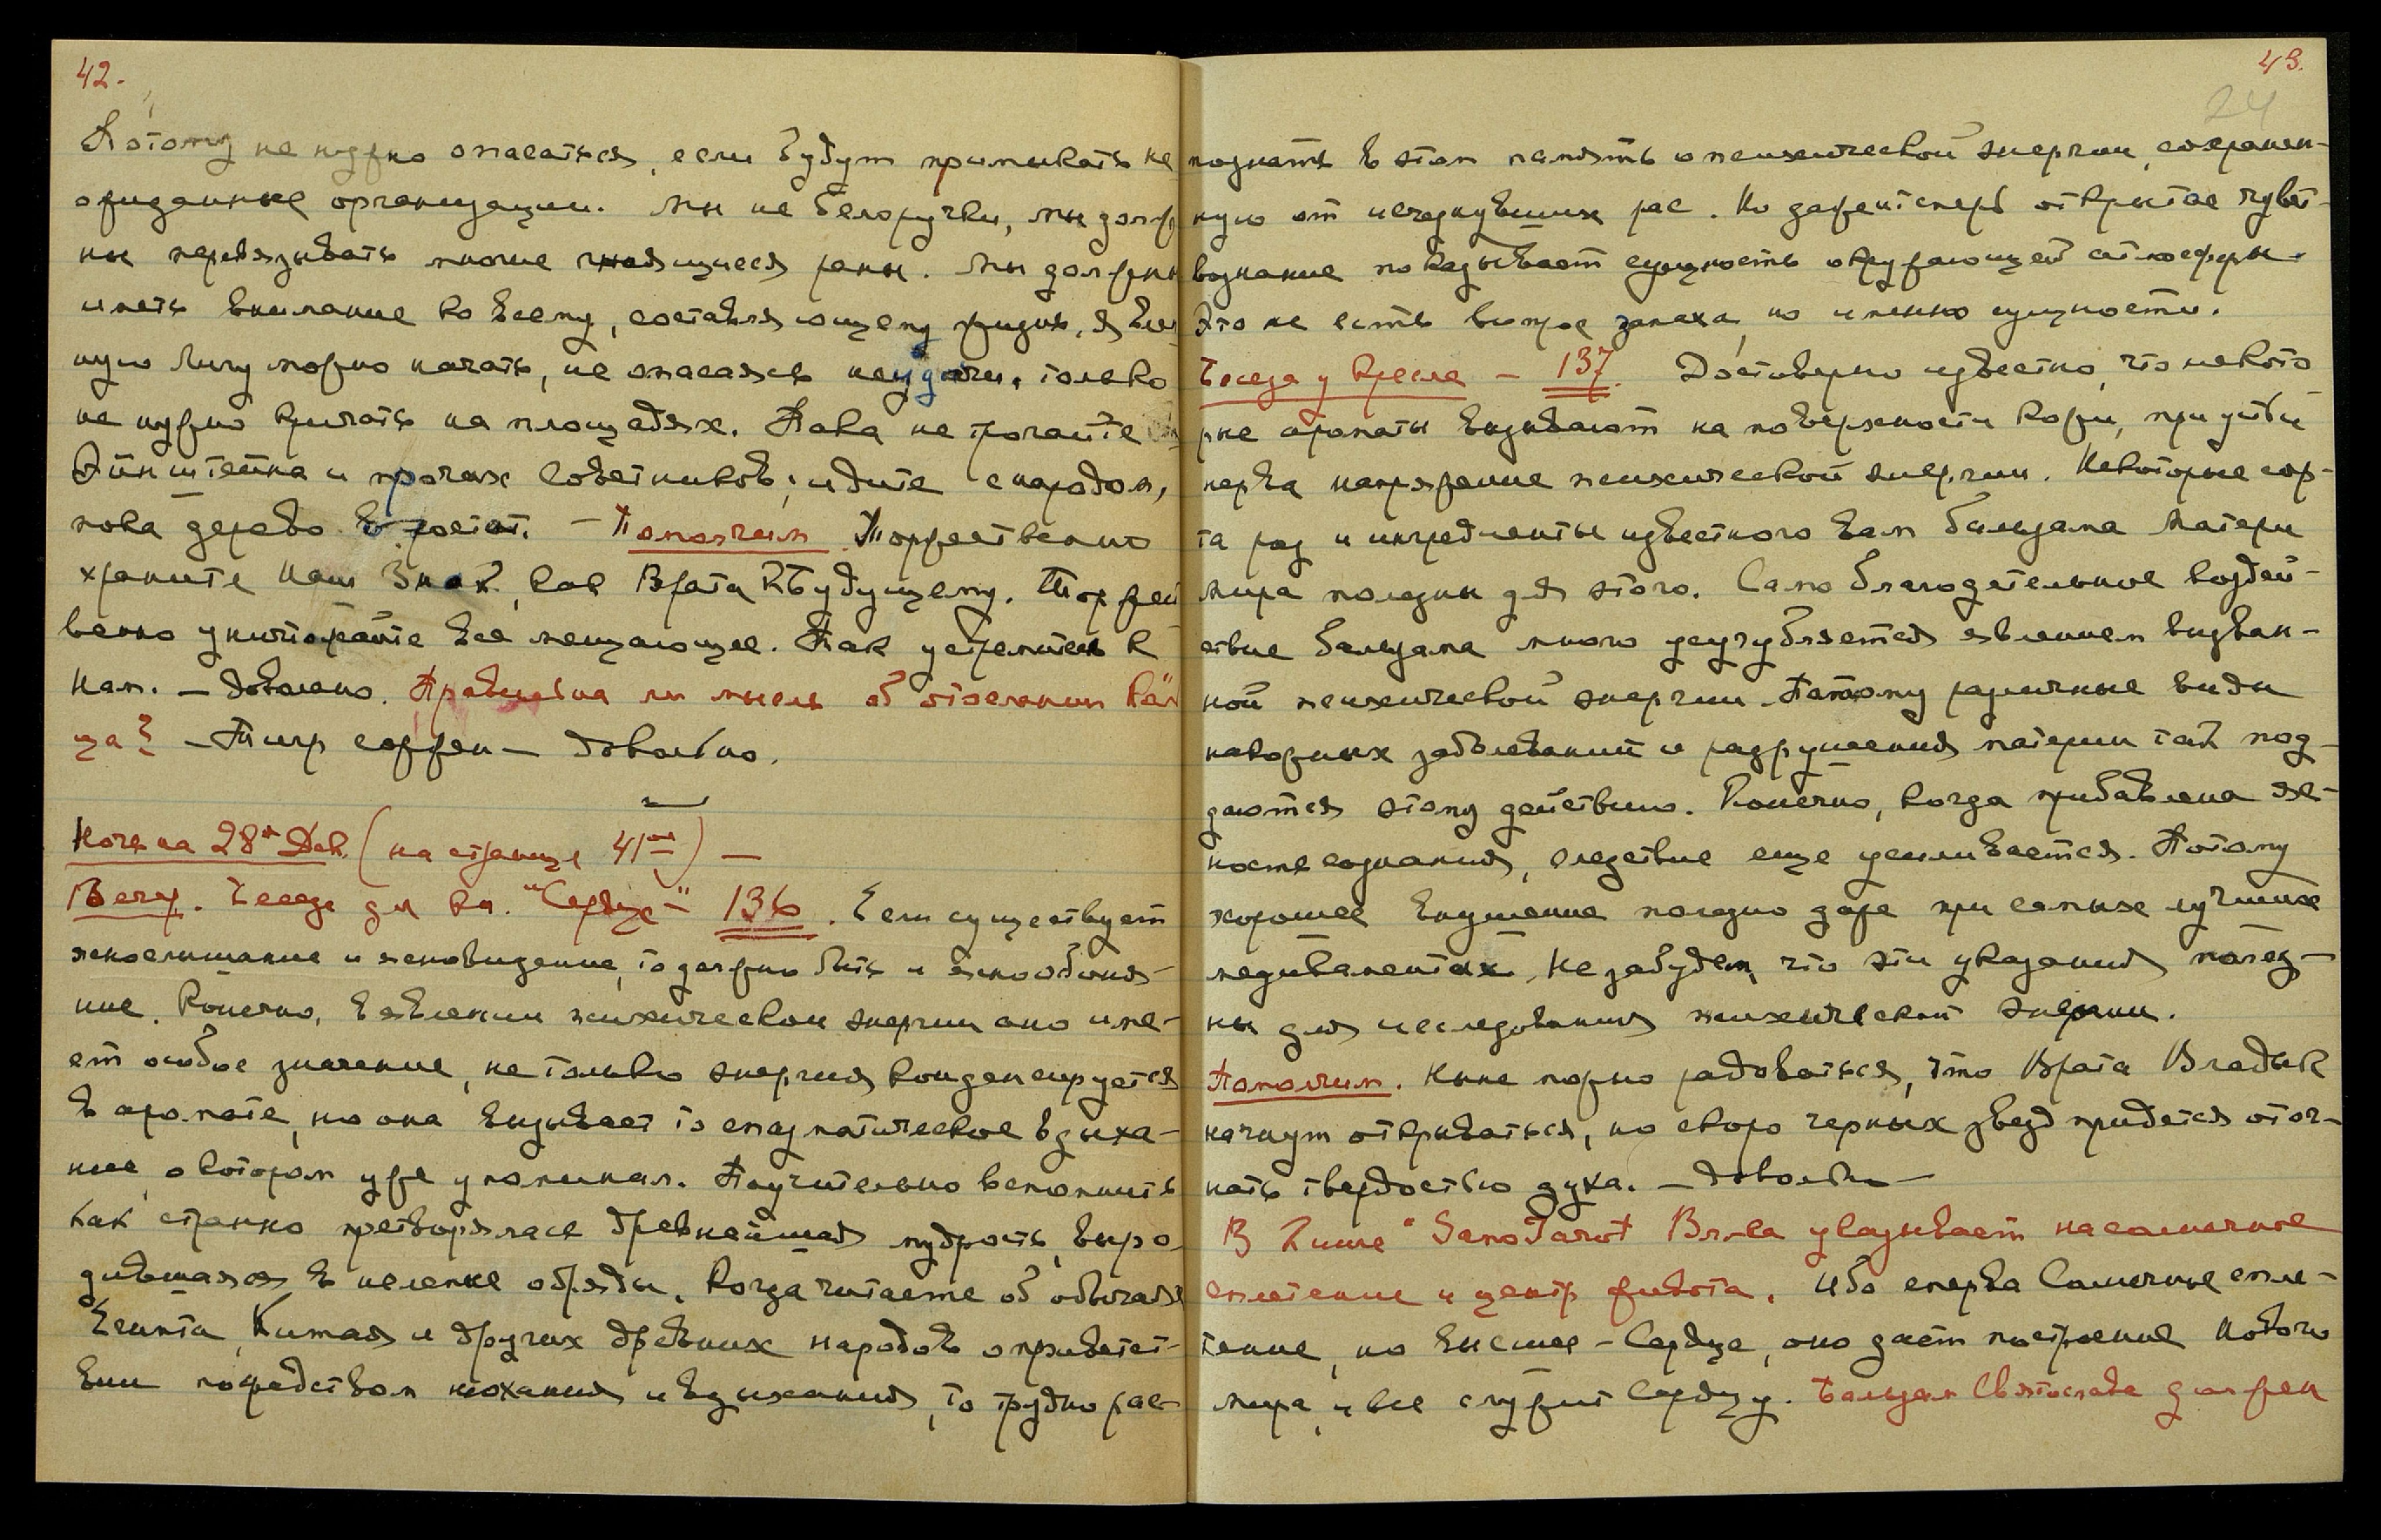 42.
Потому не нужно опасаться, если будут примыкать не
ожиданные организации. Мы не белоручки, мы долж
ны перевязывать многие гноящиеся раны. Мы должны
иметь внимание ко всему, составляющему жизнь.
ную Лигу можно начать, не опасаясь неудачи, только
не нужно кричать на площадях. Пока не трогайте
Эйнштейна и прочих советников; идите с народом,
пока дерево в росте. — Помолчим. Торжественно
храните Наш Знак, как Врата к Будущему. Торжест
венно уничтожайте все мешающее. Так устремитесь к
Нам. — Довольно. Правильна ли мысль об отослании
— довольно.
Ночь на 28ое Дек. (на странице 41ой) —
Вечер. Беседа для кн. "Сердце" — 136. Если существует
яснослышание и ясновидение, то должно быть и яснообоня-
ние. Конечно, в явлении психической энергии оно име-
ет особое значение, не только энергия конденсируется
в аромате, но она вызывает то спазматическое вдыха-
ние, о котором уже упоминал. Поучительно вспомнить
как странно претворялась древнейшая мудрость, выро-
дившаяся в нелепые обряды. Когда читаете об обычаях
Египта, Китая и других древних народов о приветст-
вии посредством нюхания и вдыхания, то трудно рас-
43.
24
познать в этом память о психической энергии, сохранен-
ную от исчезнувших рас. Но даже и теперь открытое чувст-
вознание показывает сущность окружающей атмосферы.
Это не есть вопрос запаха, но именно сущности.
Беседа у кресла — 137. Достоверно известно, что некото
рые ароматы вызывают на поверхности кожи, при участи
нерва напряжение психической энергии. Некоторые сор-
та роз и ингредиенты известного вам бальзама Матери
Мира полезны для этого. Само благодетельное воздей-
ствие бальзама много усугубляется явлением вызван-
ной психической энергии. Потому различные виды
накожных заболеваний и разрушения материи так под-
даются этому действию. Конечно, когда прибавлена яс-
ность сознания, следствие еще усиливается. Потому
хорошее внушение полезно даже при самых лучших
медикаментах. Не забудем, что эти указания полез-
ны для исследования психической энергии.
Помолчим. Ныне можно радоваться, что Врата Владык
начнут открываться, но свору черных звезд придется отог-
нать твердостью духа. — Довольно —
В Книге указывает на солнечное
сплетение и центр живота. Ибо сперва Солнечное спле-
тение, но высшее — Сердце, оно дает построение Нового
Мира, и все служит Сердцу. Бальзам Святослава должен